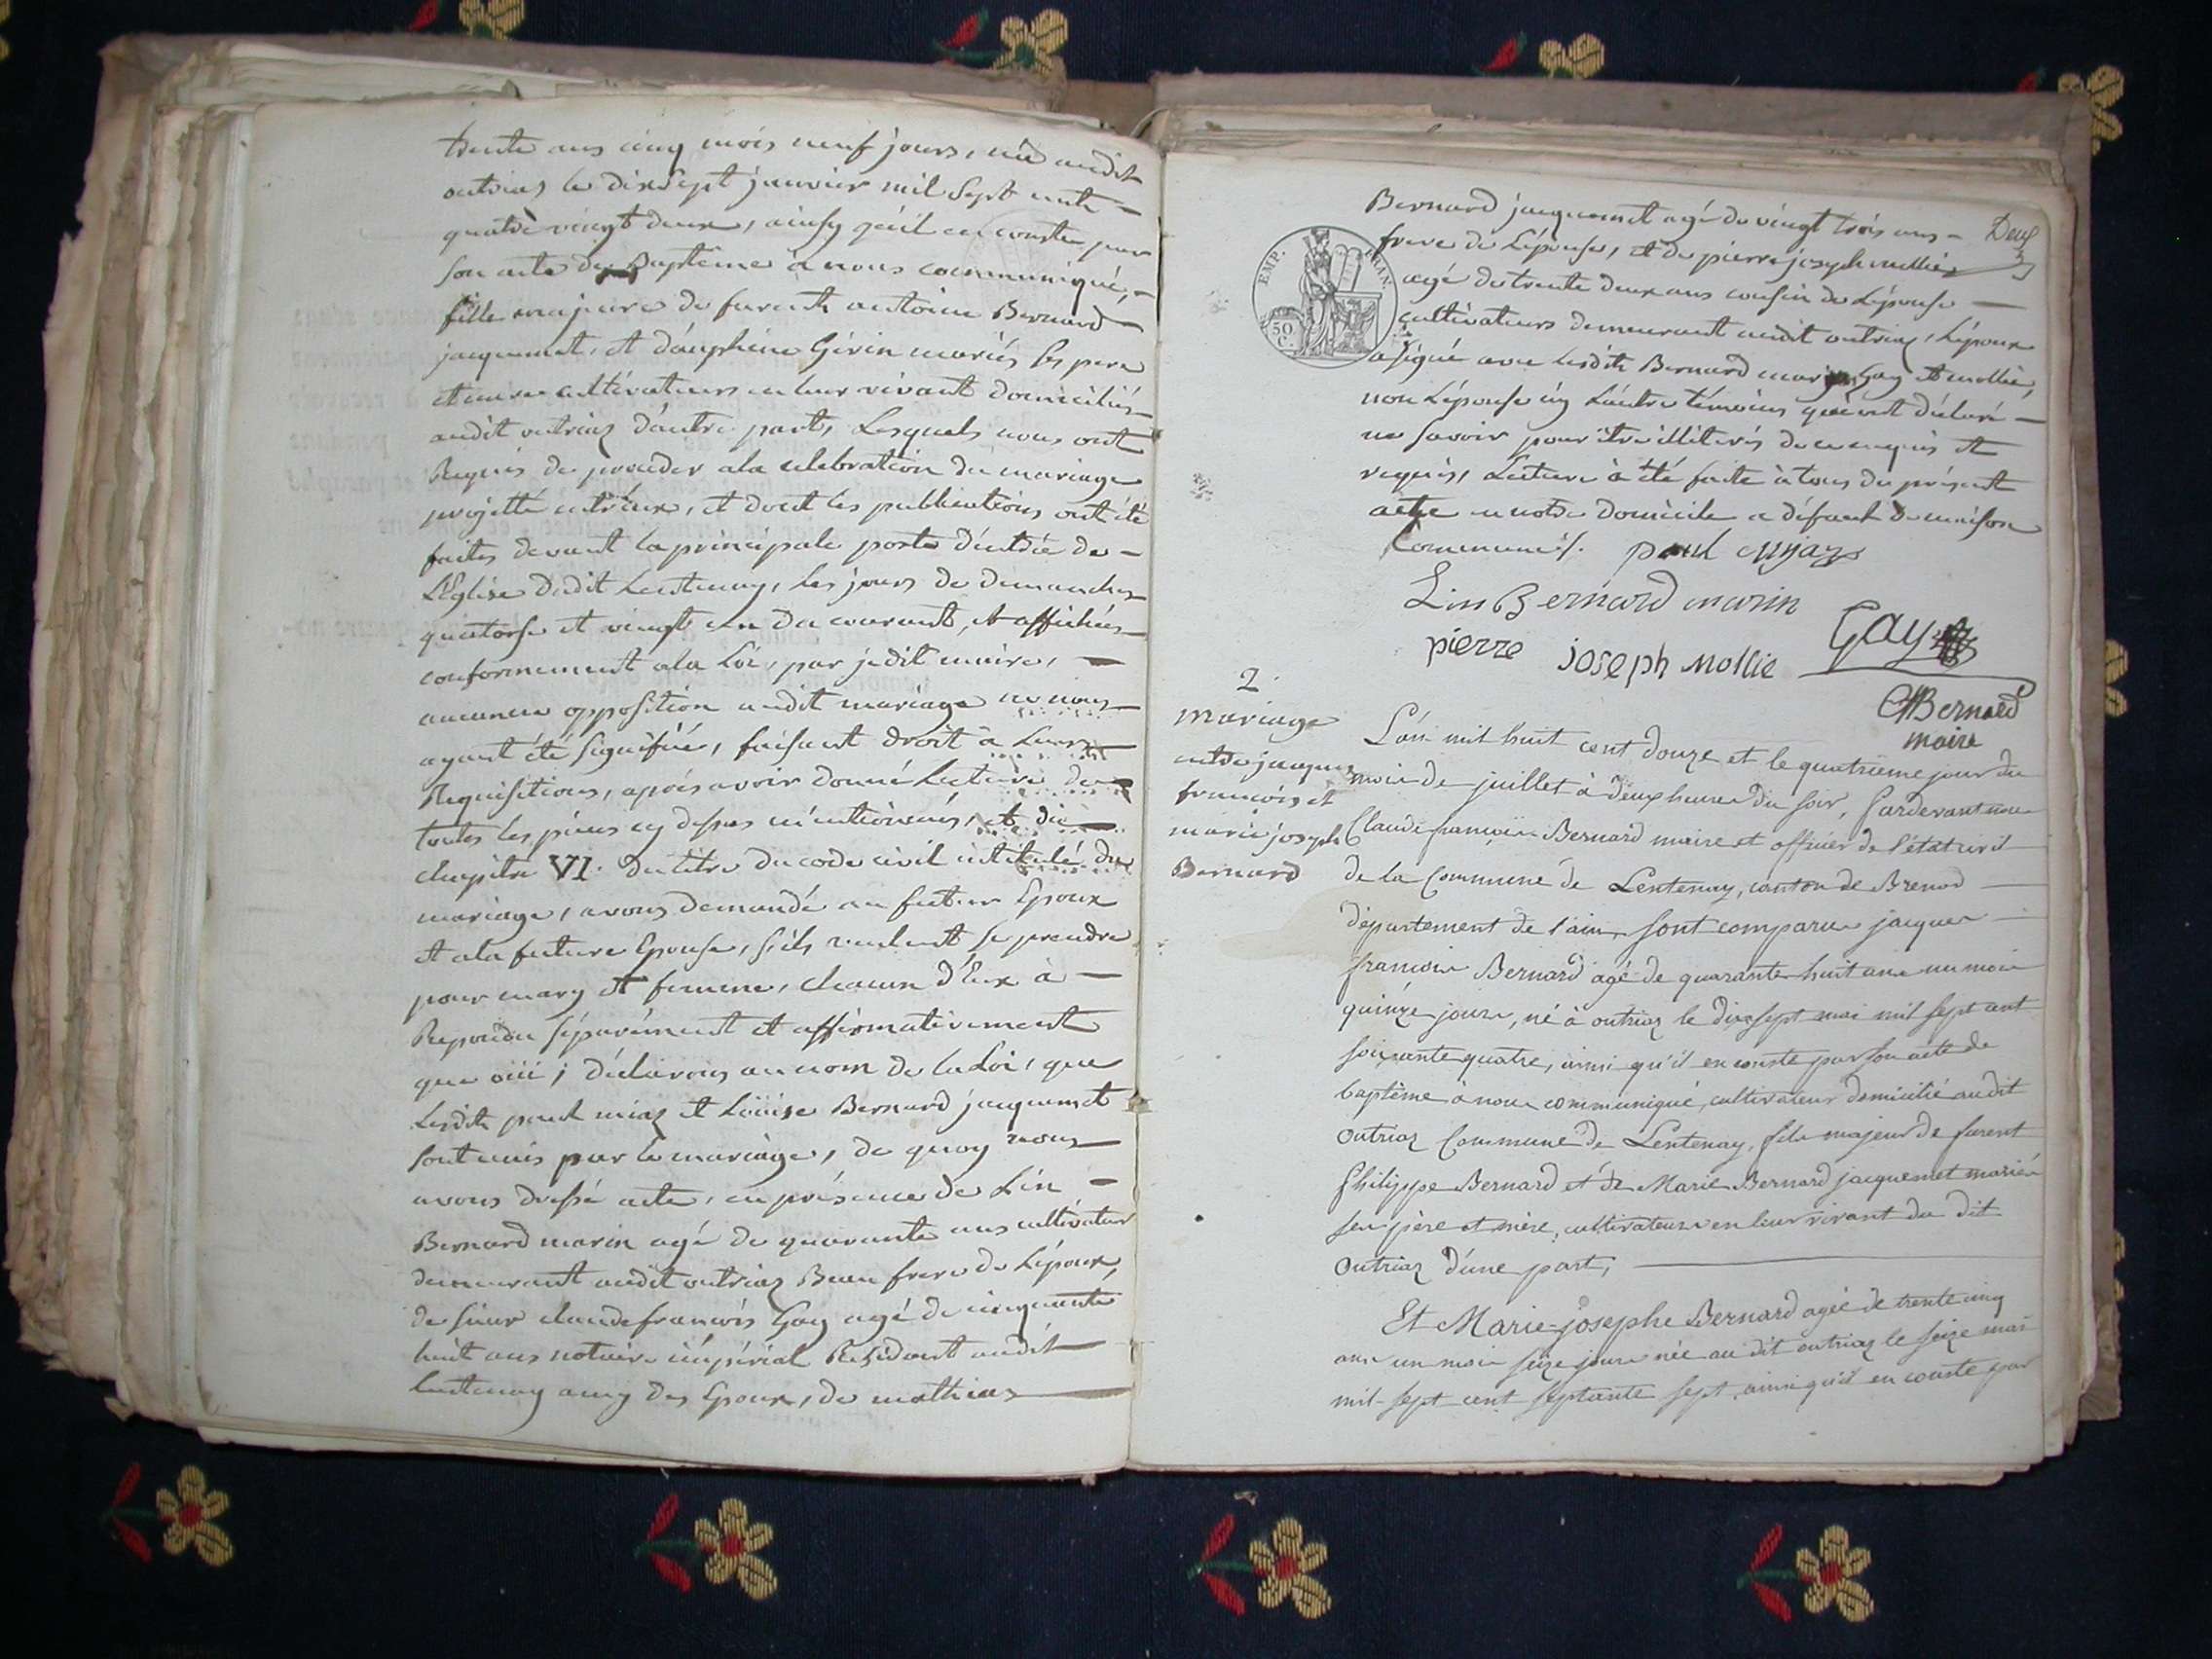 trente ans cinq mois neuf jours, née audit
outriaz le dixsept janvier mil sept cents
quatre vingt deux, ainsy qu'il en conste par
son acte de Baptême à nous communiqué,
fille majeure de furent antoine Bernard
jacquemet, et dauphine Girin mariés ses pere
et mere cultivateurs en leur vivant domiciliés
audit outriaz d'autre part, Lesquels nous ont
Requis de proceder a la celebration du mariage
projetté entr'eux, et dont les publications ont été
faites devant la principale porte d'entrée de
L'Eglise dudit Lentenay, les jours de dimanches
quatorse et vingt un du courant, et affichées
conformement a la Loi, par jedit maire,
aucune opposition audit mariage ne nous
ayant été signifiée, faisant droit à Leurs
Requisitions, après avoir donné Lecture de
toutes les pièces cy dessus mentionnées, et du
chapitre VI. du titre du code civil intitulé du
mariage, avons demandé au futur Epoux
et a la future Epouse, s'ils veulent se prendre
pour mary et femme, chacun d'Eux à
Repondu séparément et affirmativement
que oui; déclarons au nom de la Loi, que
Lesdits paul miaz et Louise Bernard jacquemet
sont unis par le mariage, de quoy nous
avons dressé acte, en présence de Lin
Bernard marin agé de quarante ans cultivateur
demeurant audit outriaz Beau frere de L'époux,
de sieur claude françois Gay agé de cinquante
huit ans notaire impérial Residant audit
Lentenay amy des Epoux, de mathias
Deux
Bernard jacquemet agé de vingt trois ans
frere de L'épouse, et de pierre joseph mollie
agé de trente deux ans cousin de L'épouse
EMP. FRAN.
50 C.
cultivateurs demeurant audit outriaz, L'époux
a signé avec lesdits Bernard marin, Gay et mollie,
non L'épouse ny L'autre témoins qui ont déclaré
ne savoir pour être illiterés de ce enquis et
requis, Lecture à été faite à tous du présent
acte en notre domicile a défaut de maison
Commune.
paul myaz
Lin Bernard marin
pierre joseph Mollie
Gay
Bernard
maire
2.
mariage
entre jacques
françois et
marie joseph
Bernard
L'an mil huit cent douze et le quatrieme jour du
mois de juillet à deux heures du soir, pardevant nous
Claude françois Bernard maire et officier de l'état civil
de la Commune de Lentenay, canton de Brenod
departement de l'ain, sont comparus jacques
françois Bernard agé de quarante huit ans un mois
quinze jours, né à outriaz le dix sept mai mil sept cent
soixante quatre, ainsi qu'il en conste par son acte de
baptême à nous communiqué, cultivateur domicilié audit
outriaz Commune de Lentenay, fils majeur de furent
Philippe Bernard et de Marie Bernard jacquemet mariés
ses père et mère, cultivateurs en leur vivant du dit
outriaz d'une part,
Et Marie-josephe Bernard agée de trente cinq
ans un mois seize jours née au dit outriaz le seize mai
mil-sept cent septante sept, ainsi qu'il en conste par